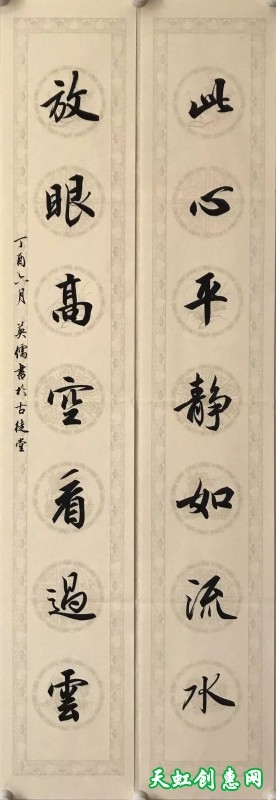 此心平静如流水
放眼高空看過雲
丁酉六月 英儒書於古徒堂
天虹创惠网